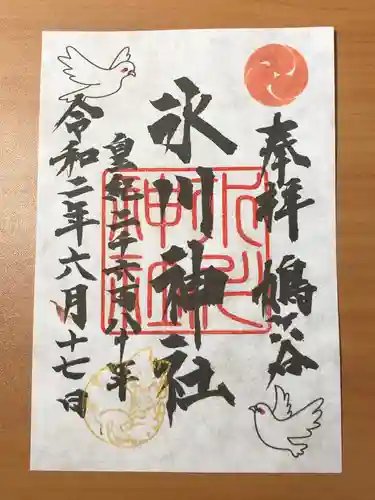 奉拝 鳩ヶ谷
氷川神社
皇紀二千六百八十年
令和二年六月十七日
氷川神社